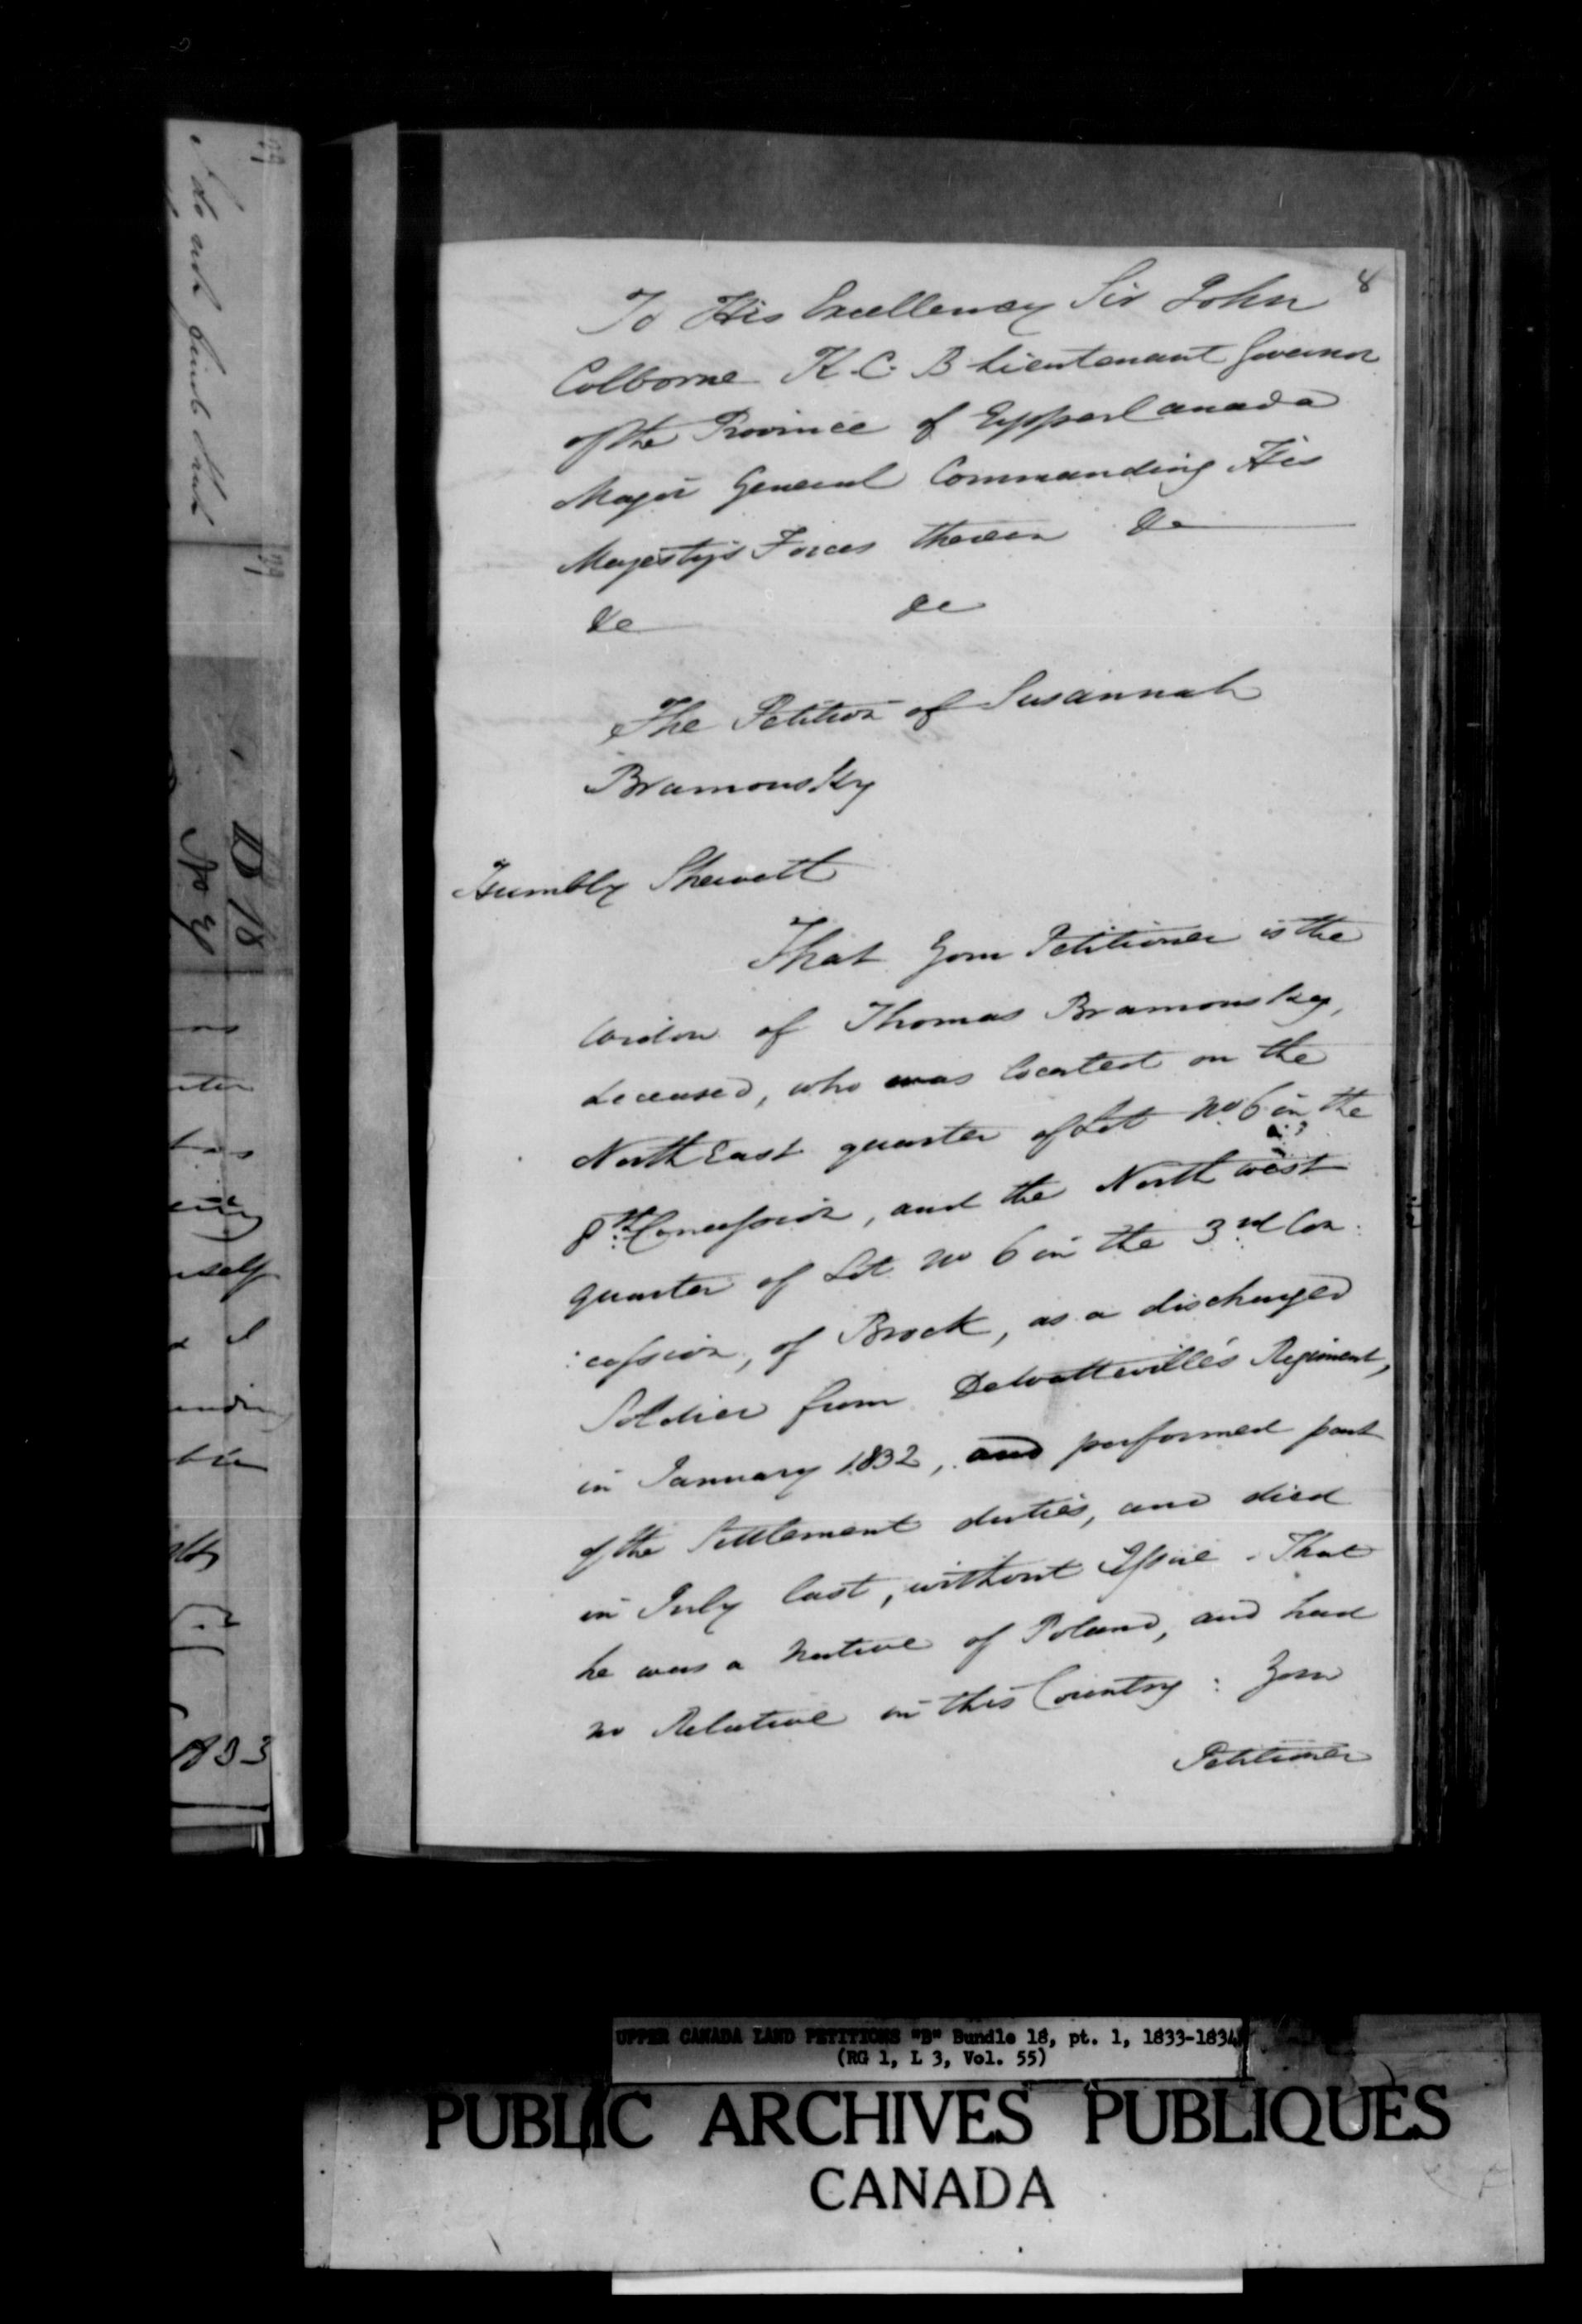 8
To His Excellency Sir John
Colborne K. C. B Lieutenant Governor
of the Province of Upper Canada
Major General Commanding His
Majesty's Forces therein &c
&c &c
The Petition of Susannah
Bramousky
Humbly Sheweth
That Your Petitioner is the
widow of Thomas Bramousky,
deceased, who was located on the
North East quarter of Lot No 6 in the
8th Concession, and the North west
quarter of Lot No 6 in the 3rd Con:
:cession, of Brock, as a discharged
Soldier from DeWatteville's Regiment,
in January 1832, and performed part
of the Settlement duties, and died
in July last, without Issue. That
he was a native of Poland, and had
no Relative in this Country: Your
Petitioner
B 18
No 4
self
1833
UPPER CANADA LAND PETITIONS "B" Bundle 18, pt. 1, 1833-1834
(RG 1, L 3, Vol. 55)
PUBLIC ARCHIVES PUBLIQUES
CANADA